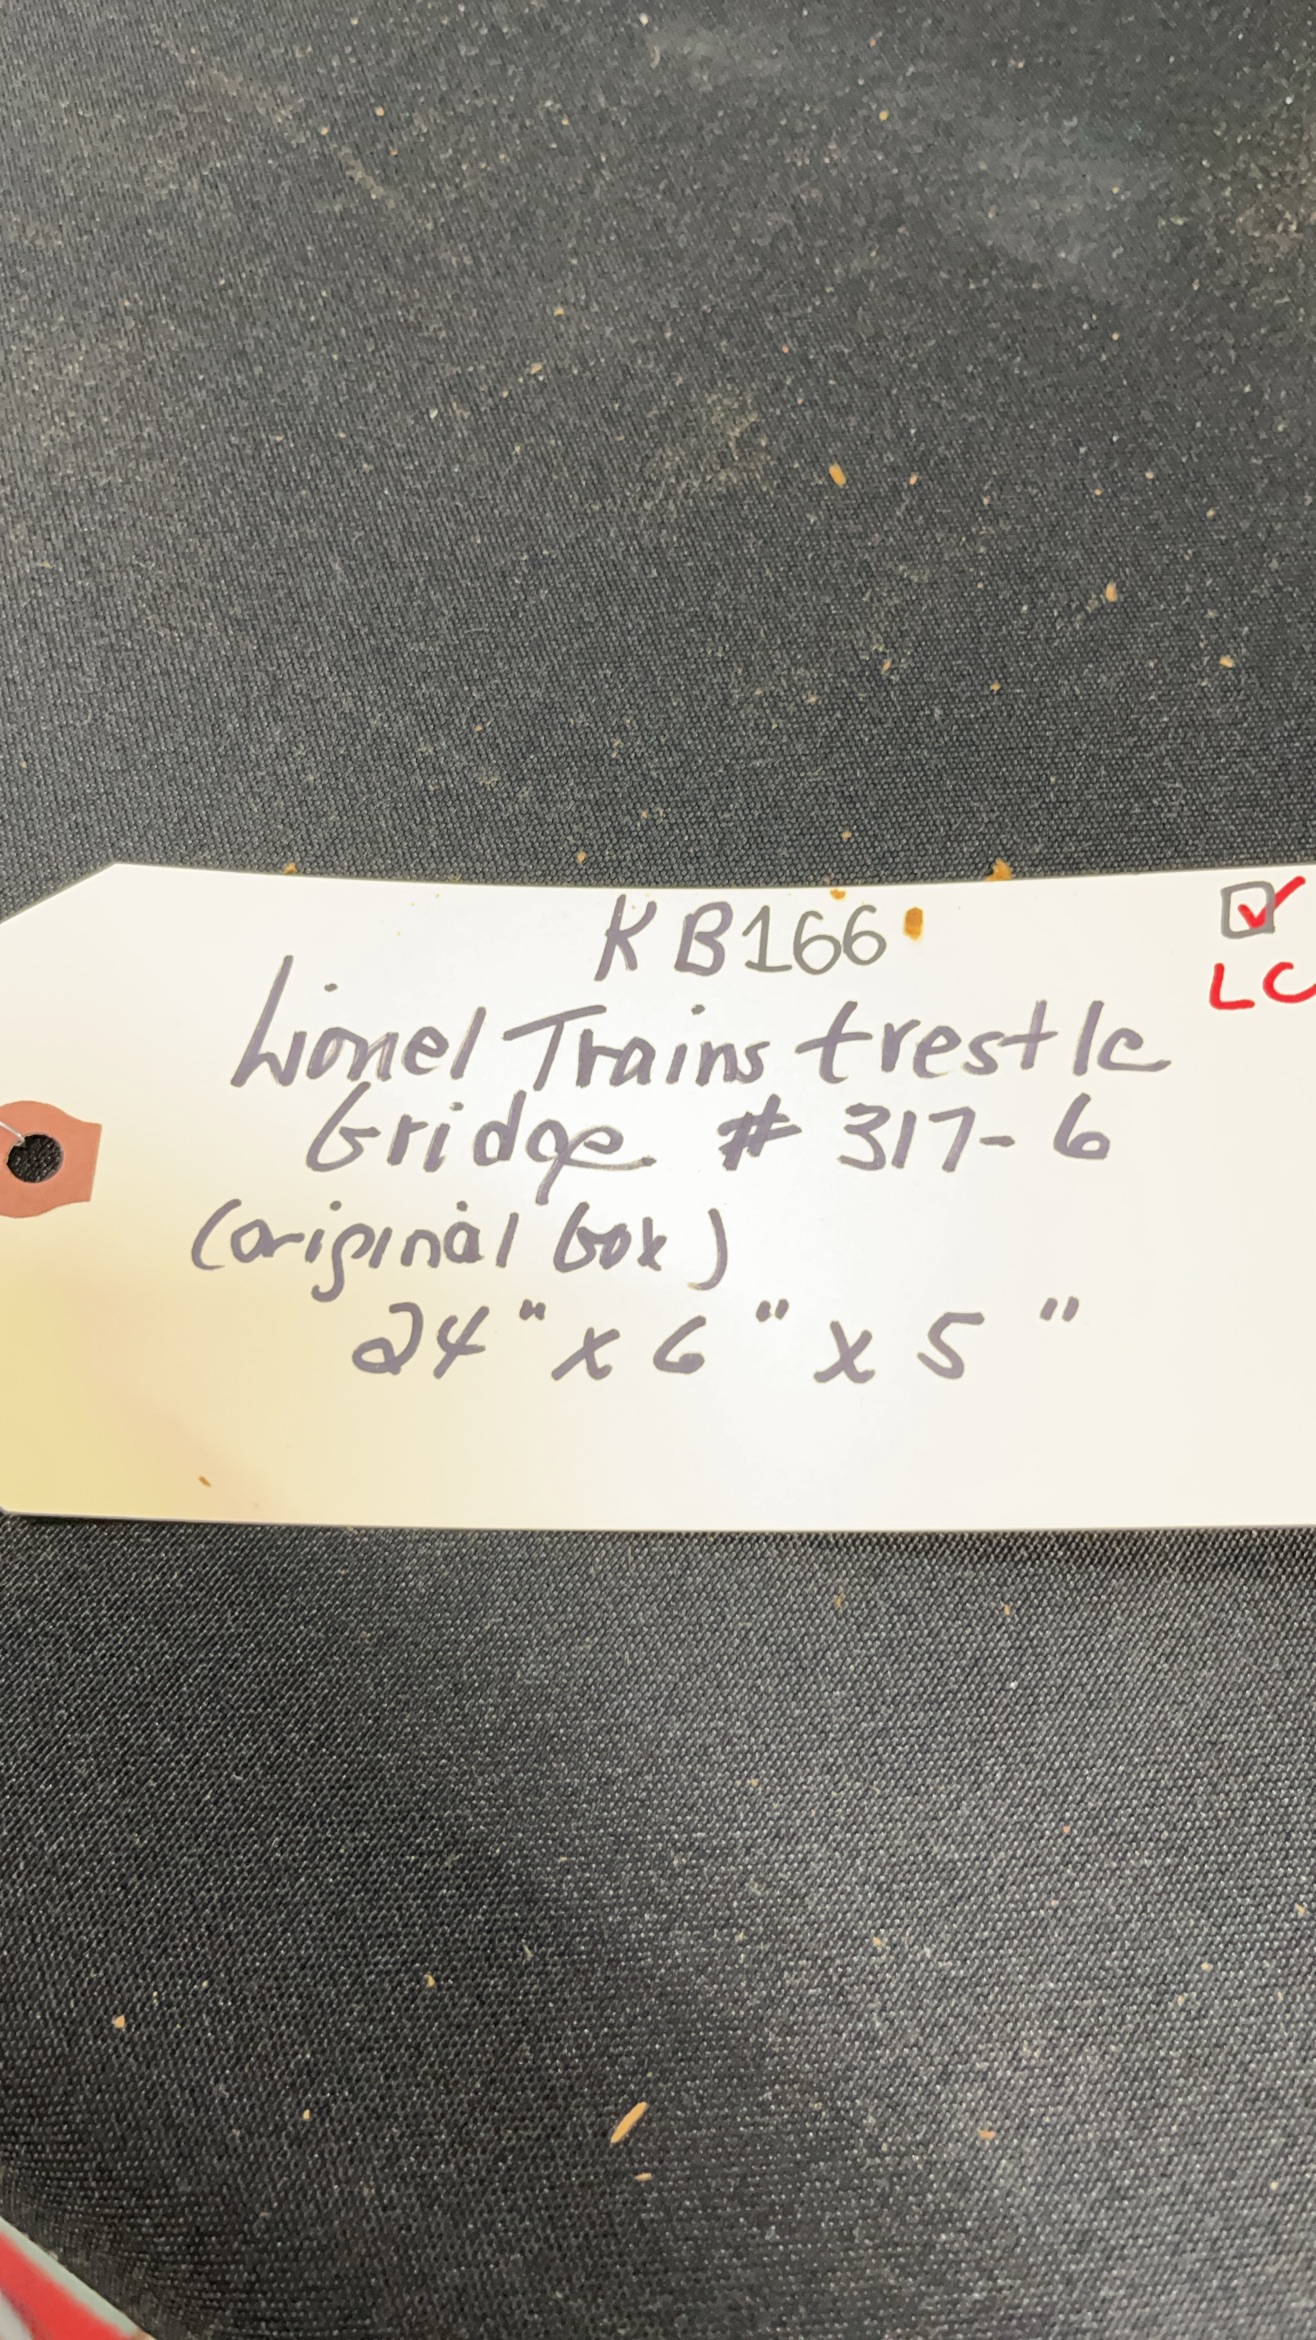 KB166
☑
LC
Lionel Trains trestle
bridge # 317-6
(original box)
24" x 6" x 5"